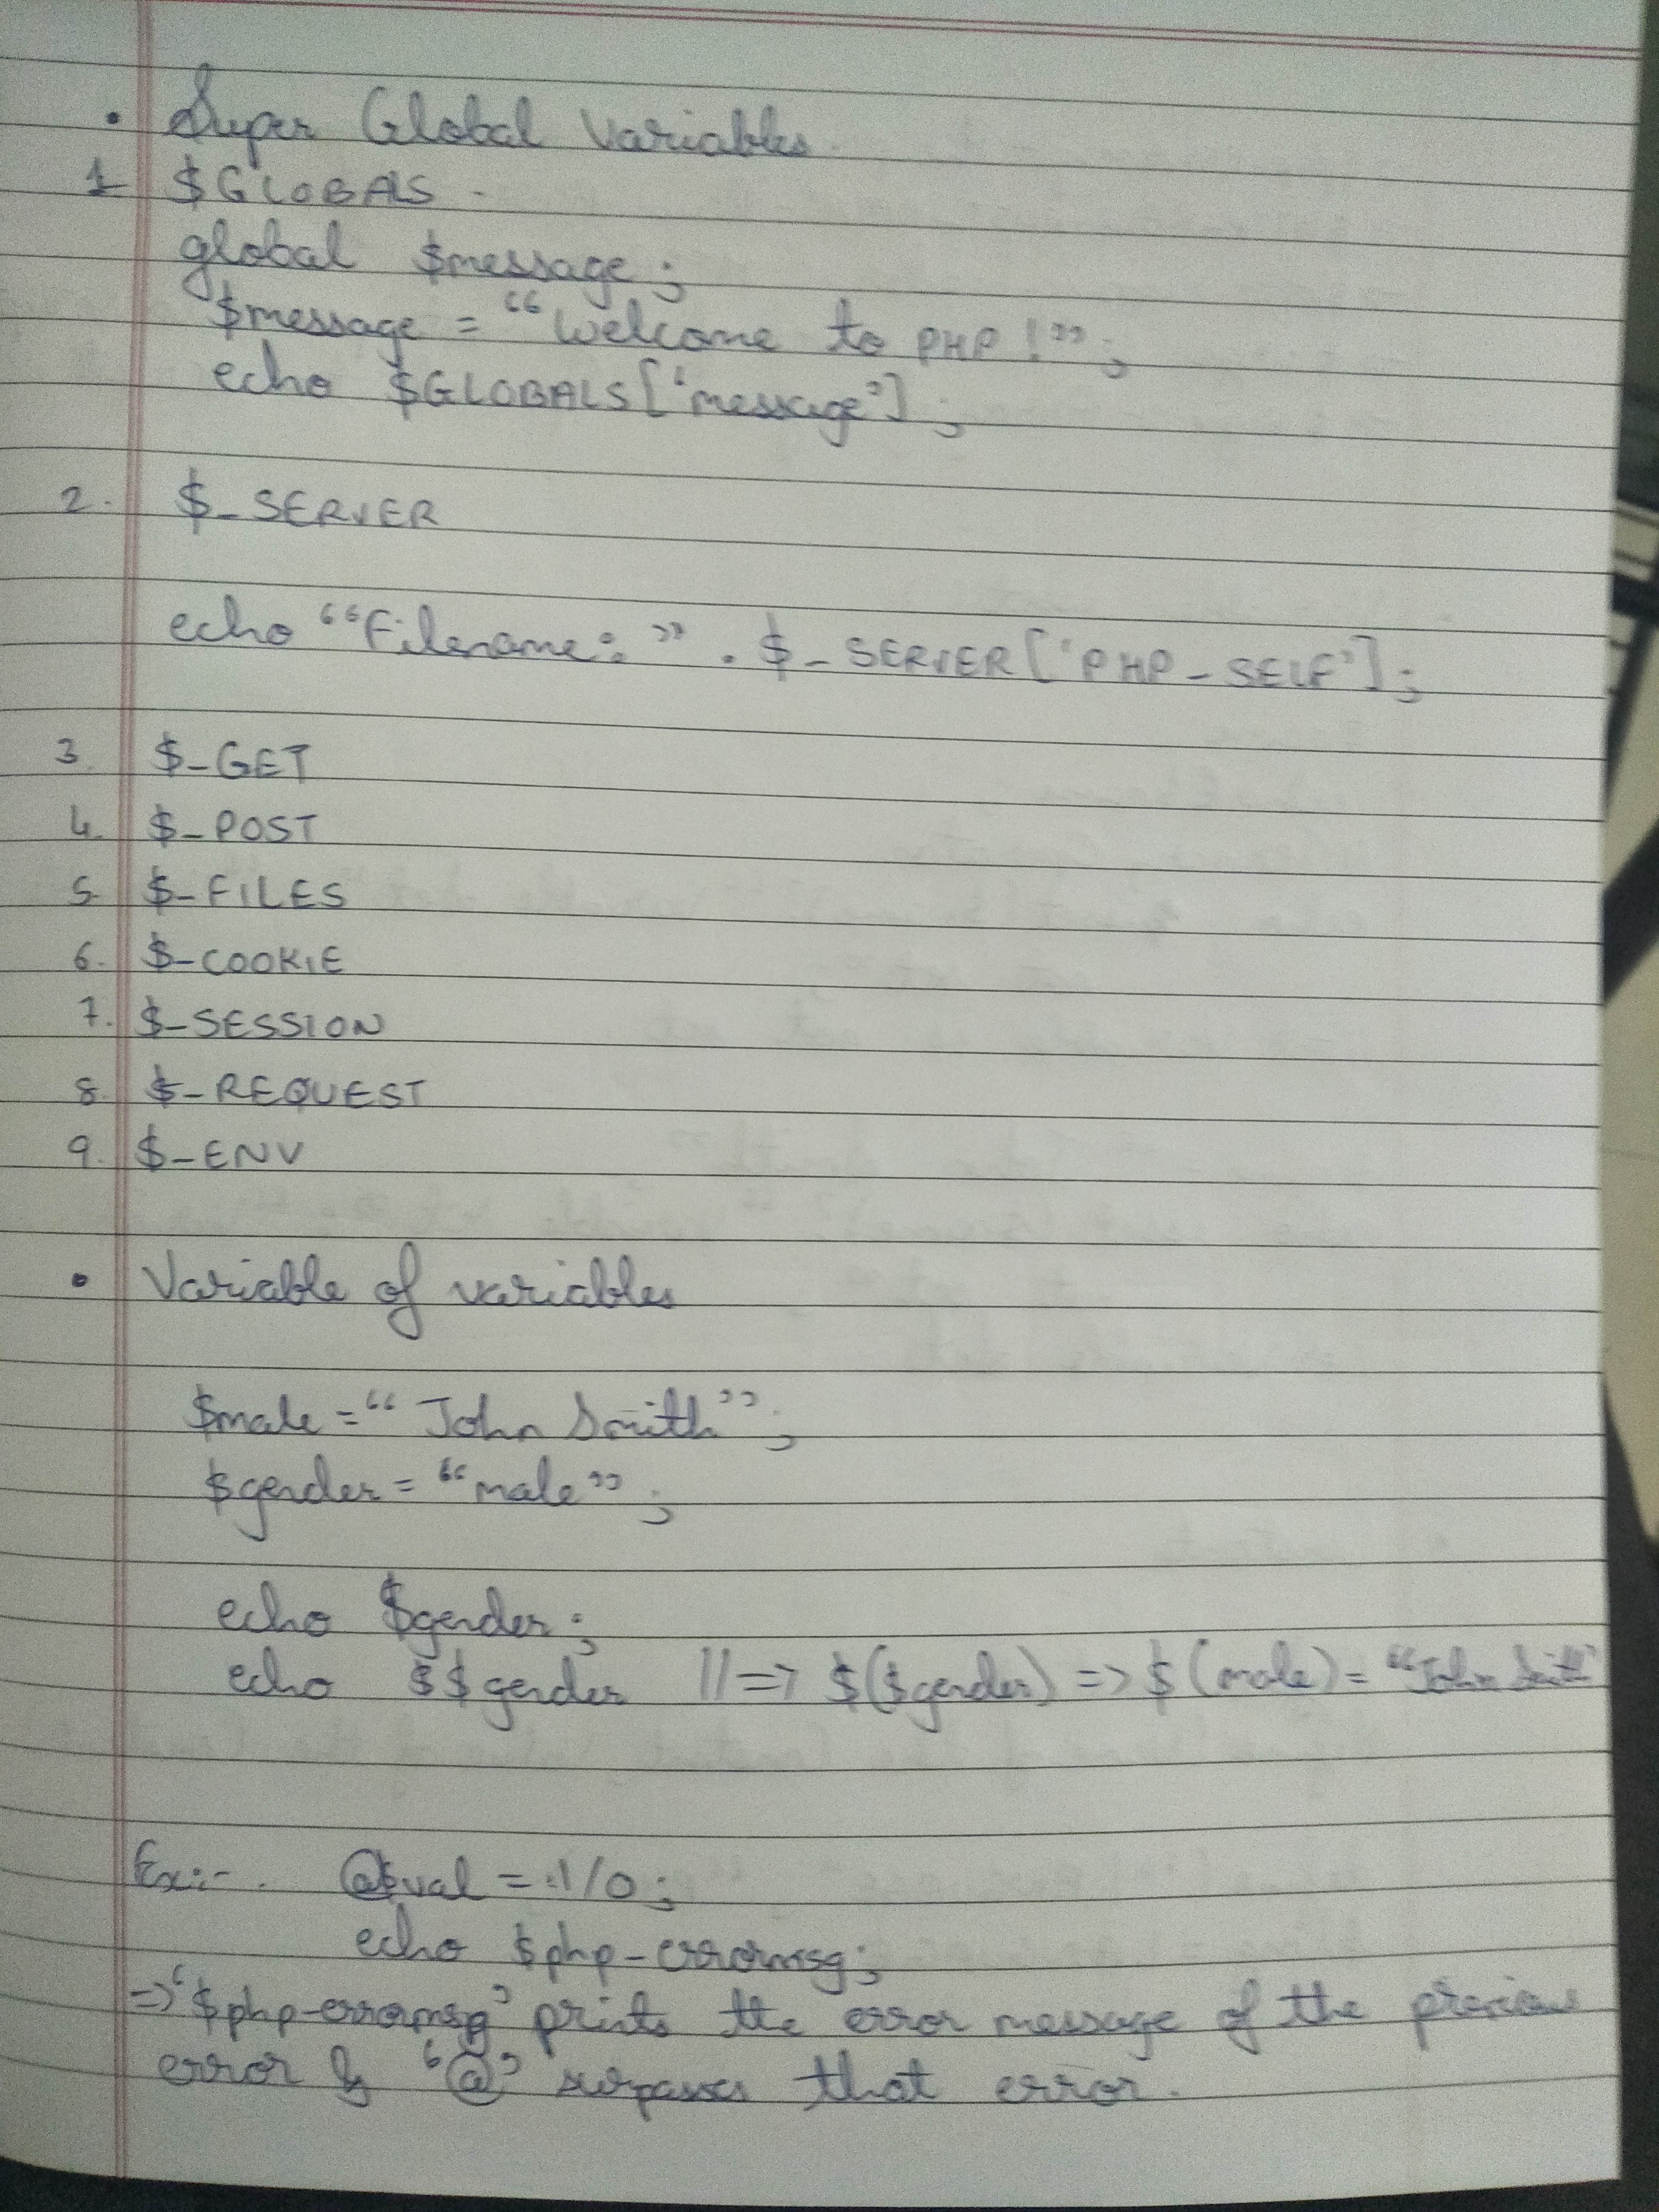 • Super Global Variables
1 $GLOBALS -
global $message;
$message = “Welcome to PHP!”;
echo $GLOBALS[‘message’];
2. $_SERVER
echo “Filename:” . $_SERVER[‘PHP_SELF’];
3. $_GET
4. $_POST
5. $_FILES
6. $_COOKIE
7. $_SESSION
8. $_REQUEST
9. $_ENV
• Variable of variables
$male = “John Smith”;
$gender = “male”;
echo $gender;
echo $$gender //=> $($gender) => $(male) = “John Smith”
Ex:- @$val = 1/0;
echo $php-errormsg;
=> ‘$php-errormsg’ prints the error message of the previous
error & ‘@’ surpasses that error.